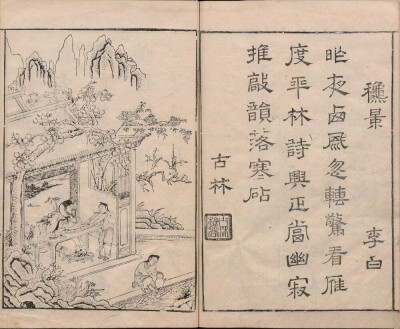 龝景
李白
昨夜西風忽轉驚看雁
度平林詩興正當幽寂
推敲韻落寒砧
古林